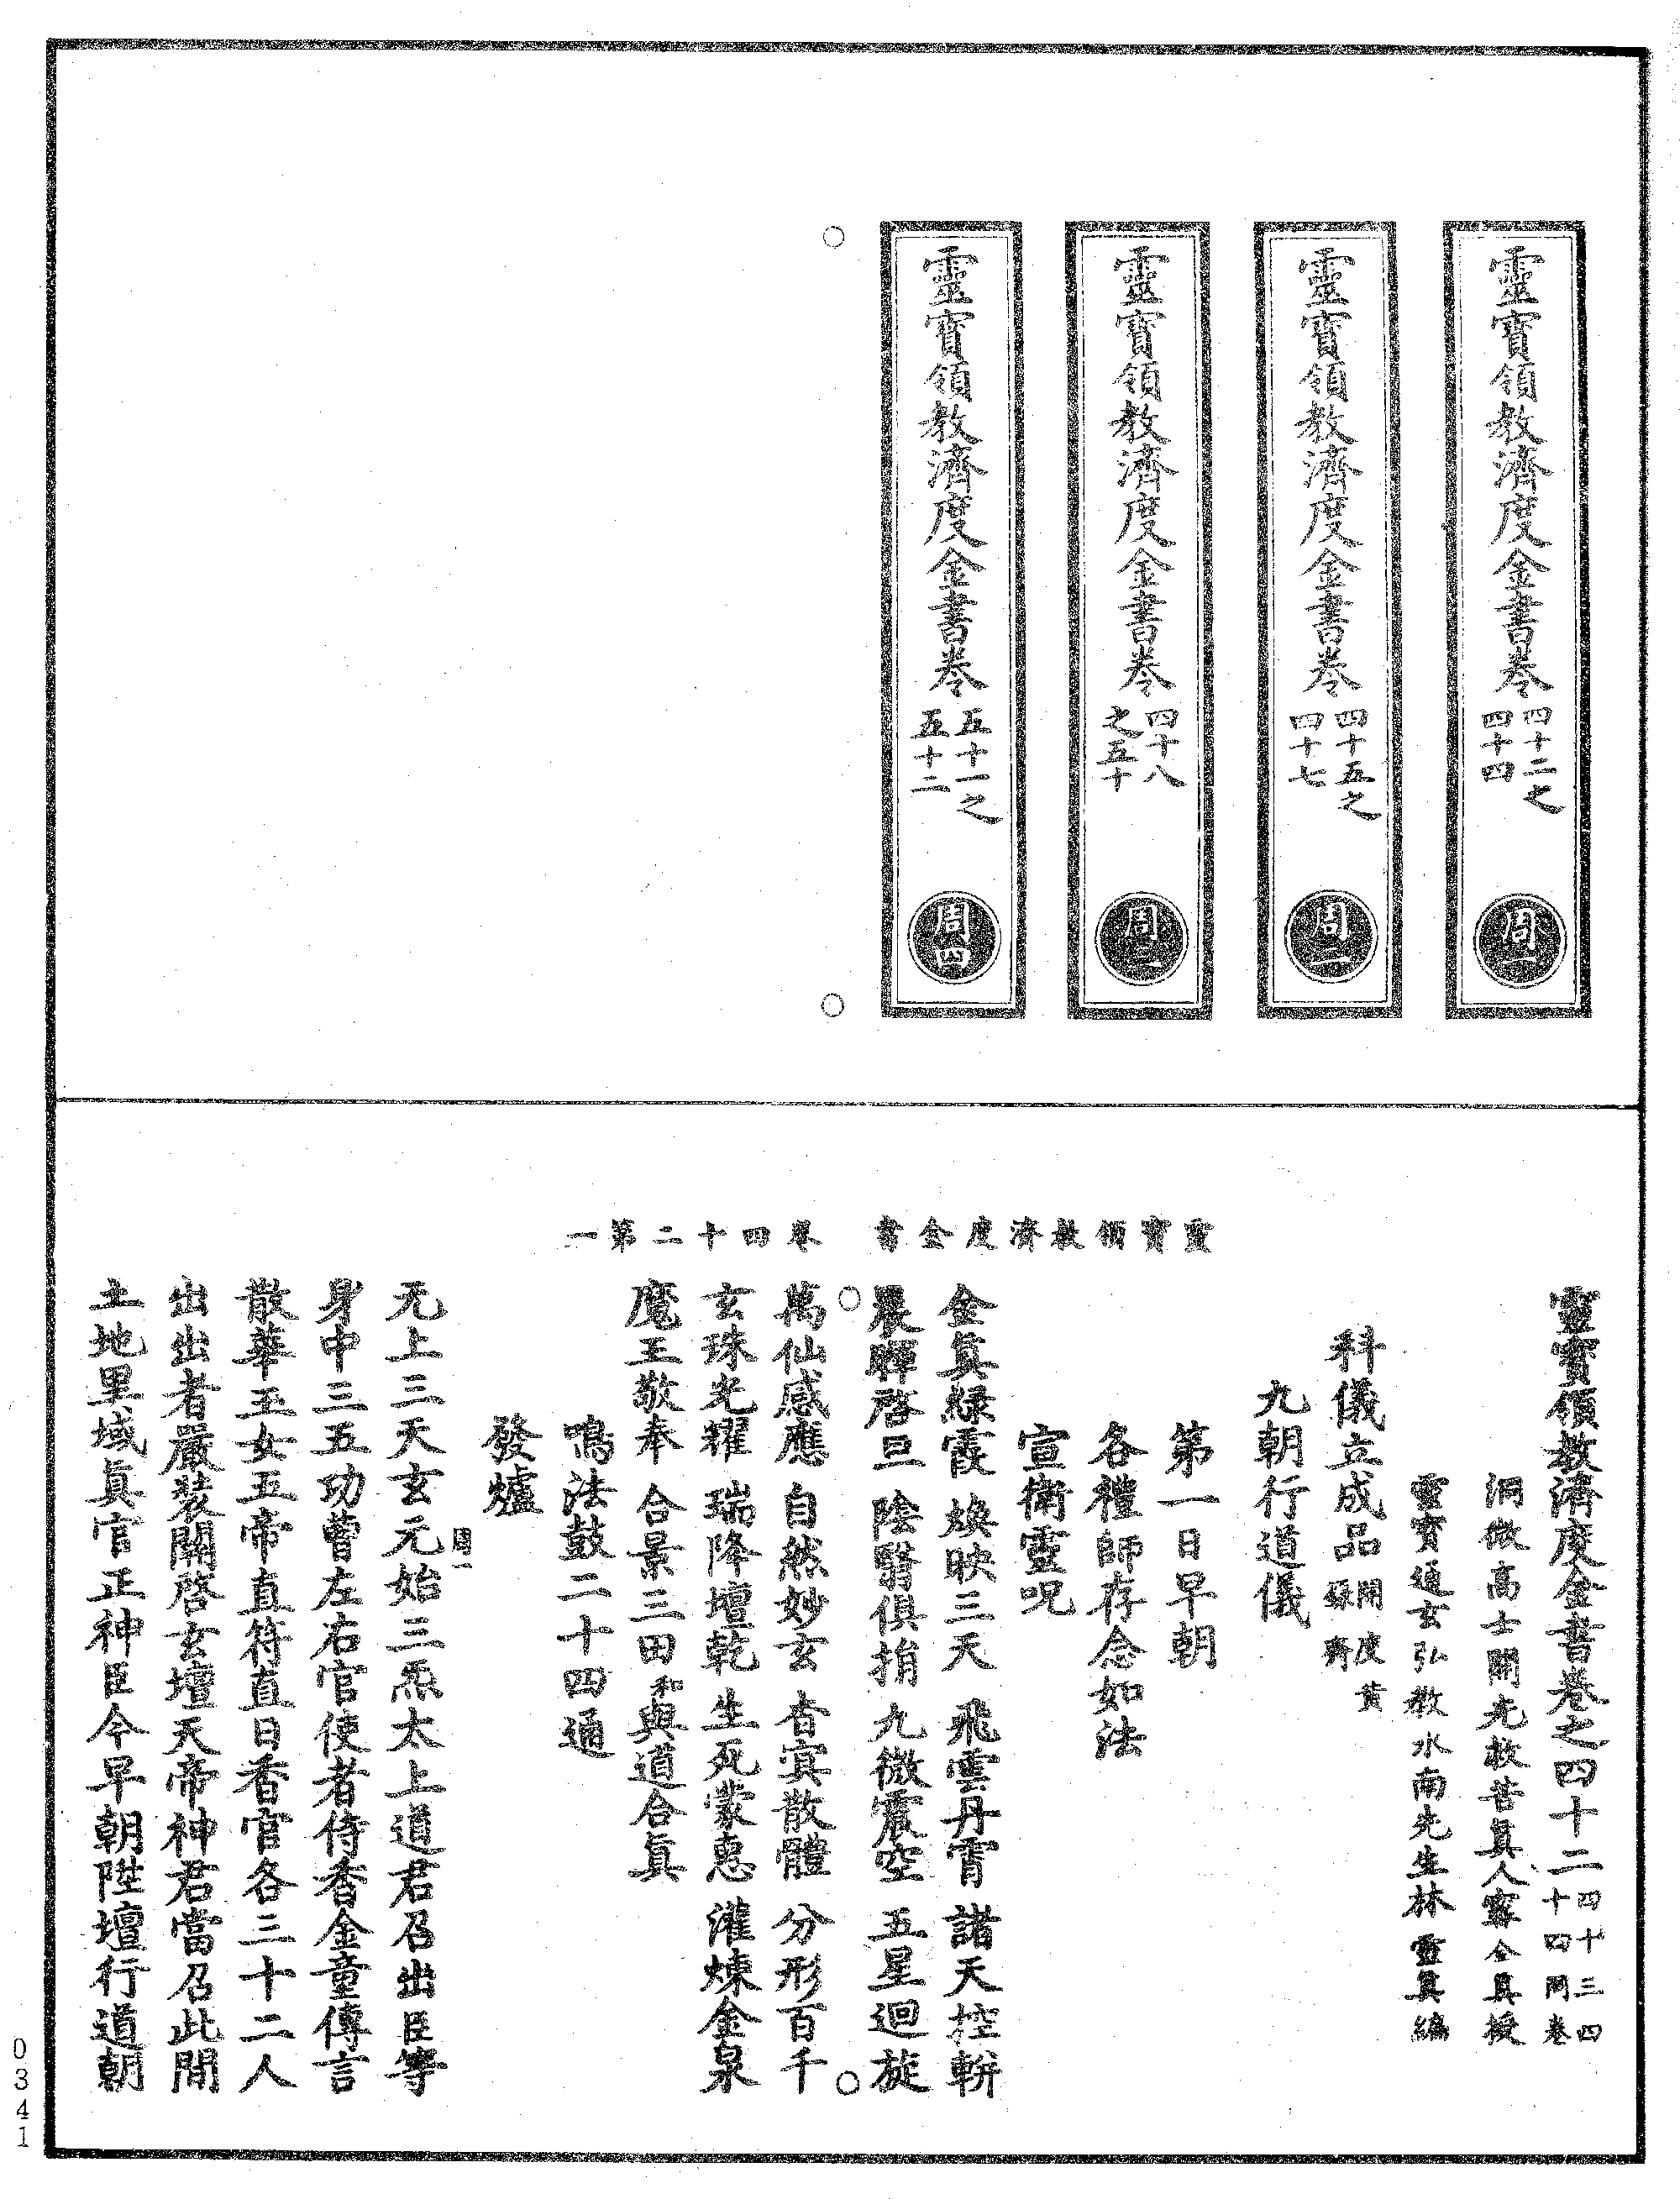 靈寶領教濟度金書卷
四十二之
四十四
周一
靈寶領教濟度金書卷
四十五之
四十七
周二
靈寶領教濟度金書卷
四十八
之五十
周三
靈寶領教濟度金書卷
五十一之
五十二
周四
靈寶領教濟度金書 卷四十二第一
靈寶領教濟度金書卷之四十二
四十三四
十四同卷
洞微高士開光救苦眞人甯全眞授
靈寶通玄弘教水南先生林靈眞編
科儀立成品
開度黃
籙齋
九朝行道儀
第一日早朝
各禮師存念如法
宣衛靈呪
金眞緑霞 煥映三天 飛雲丹霄 諸天控軿
晨暉啓旦 陰翳俱捐 九微震空 五星迴旋
萬仙感應 自然妙玄 杳冥散體 分形百千
玄珠光耀 瑞降壇乾 生死蒙惠 灌煉金泉
魔王敬奉 合景三田 和 與道合眞
鳴法鼓二十四通
發爐
周一
无上三天玄元始三炁太上道君召出臣等
身中三五功曹左右官使者侍香金童傳言
散華玉女五帝直符直日香官各三十二人
出出者嚴裝關啓玄壇天帝神君當召此間
土地里域眞官正神臣今早朝陞壇行道朝
0341